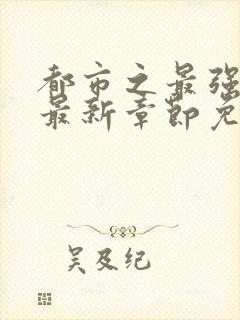 都市之最强
最新章节免
吴及纪